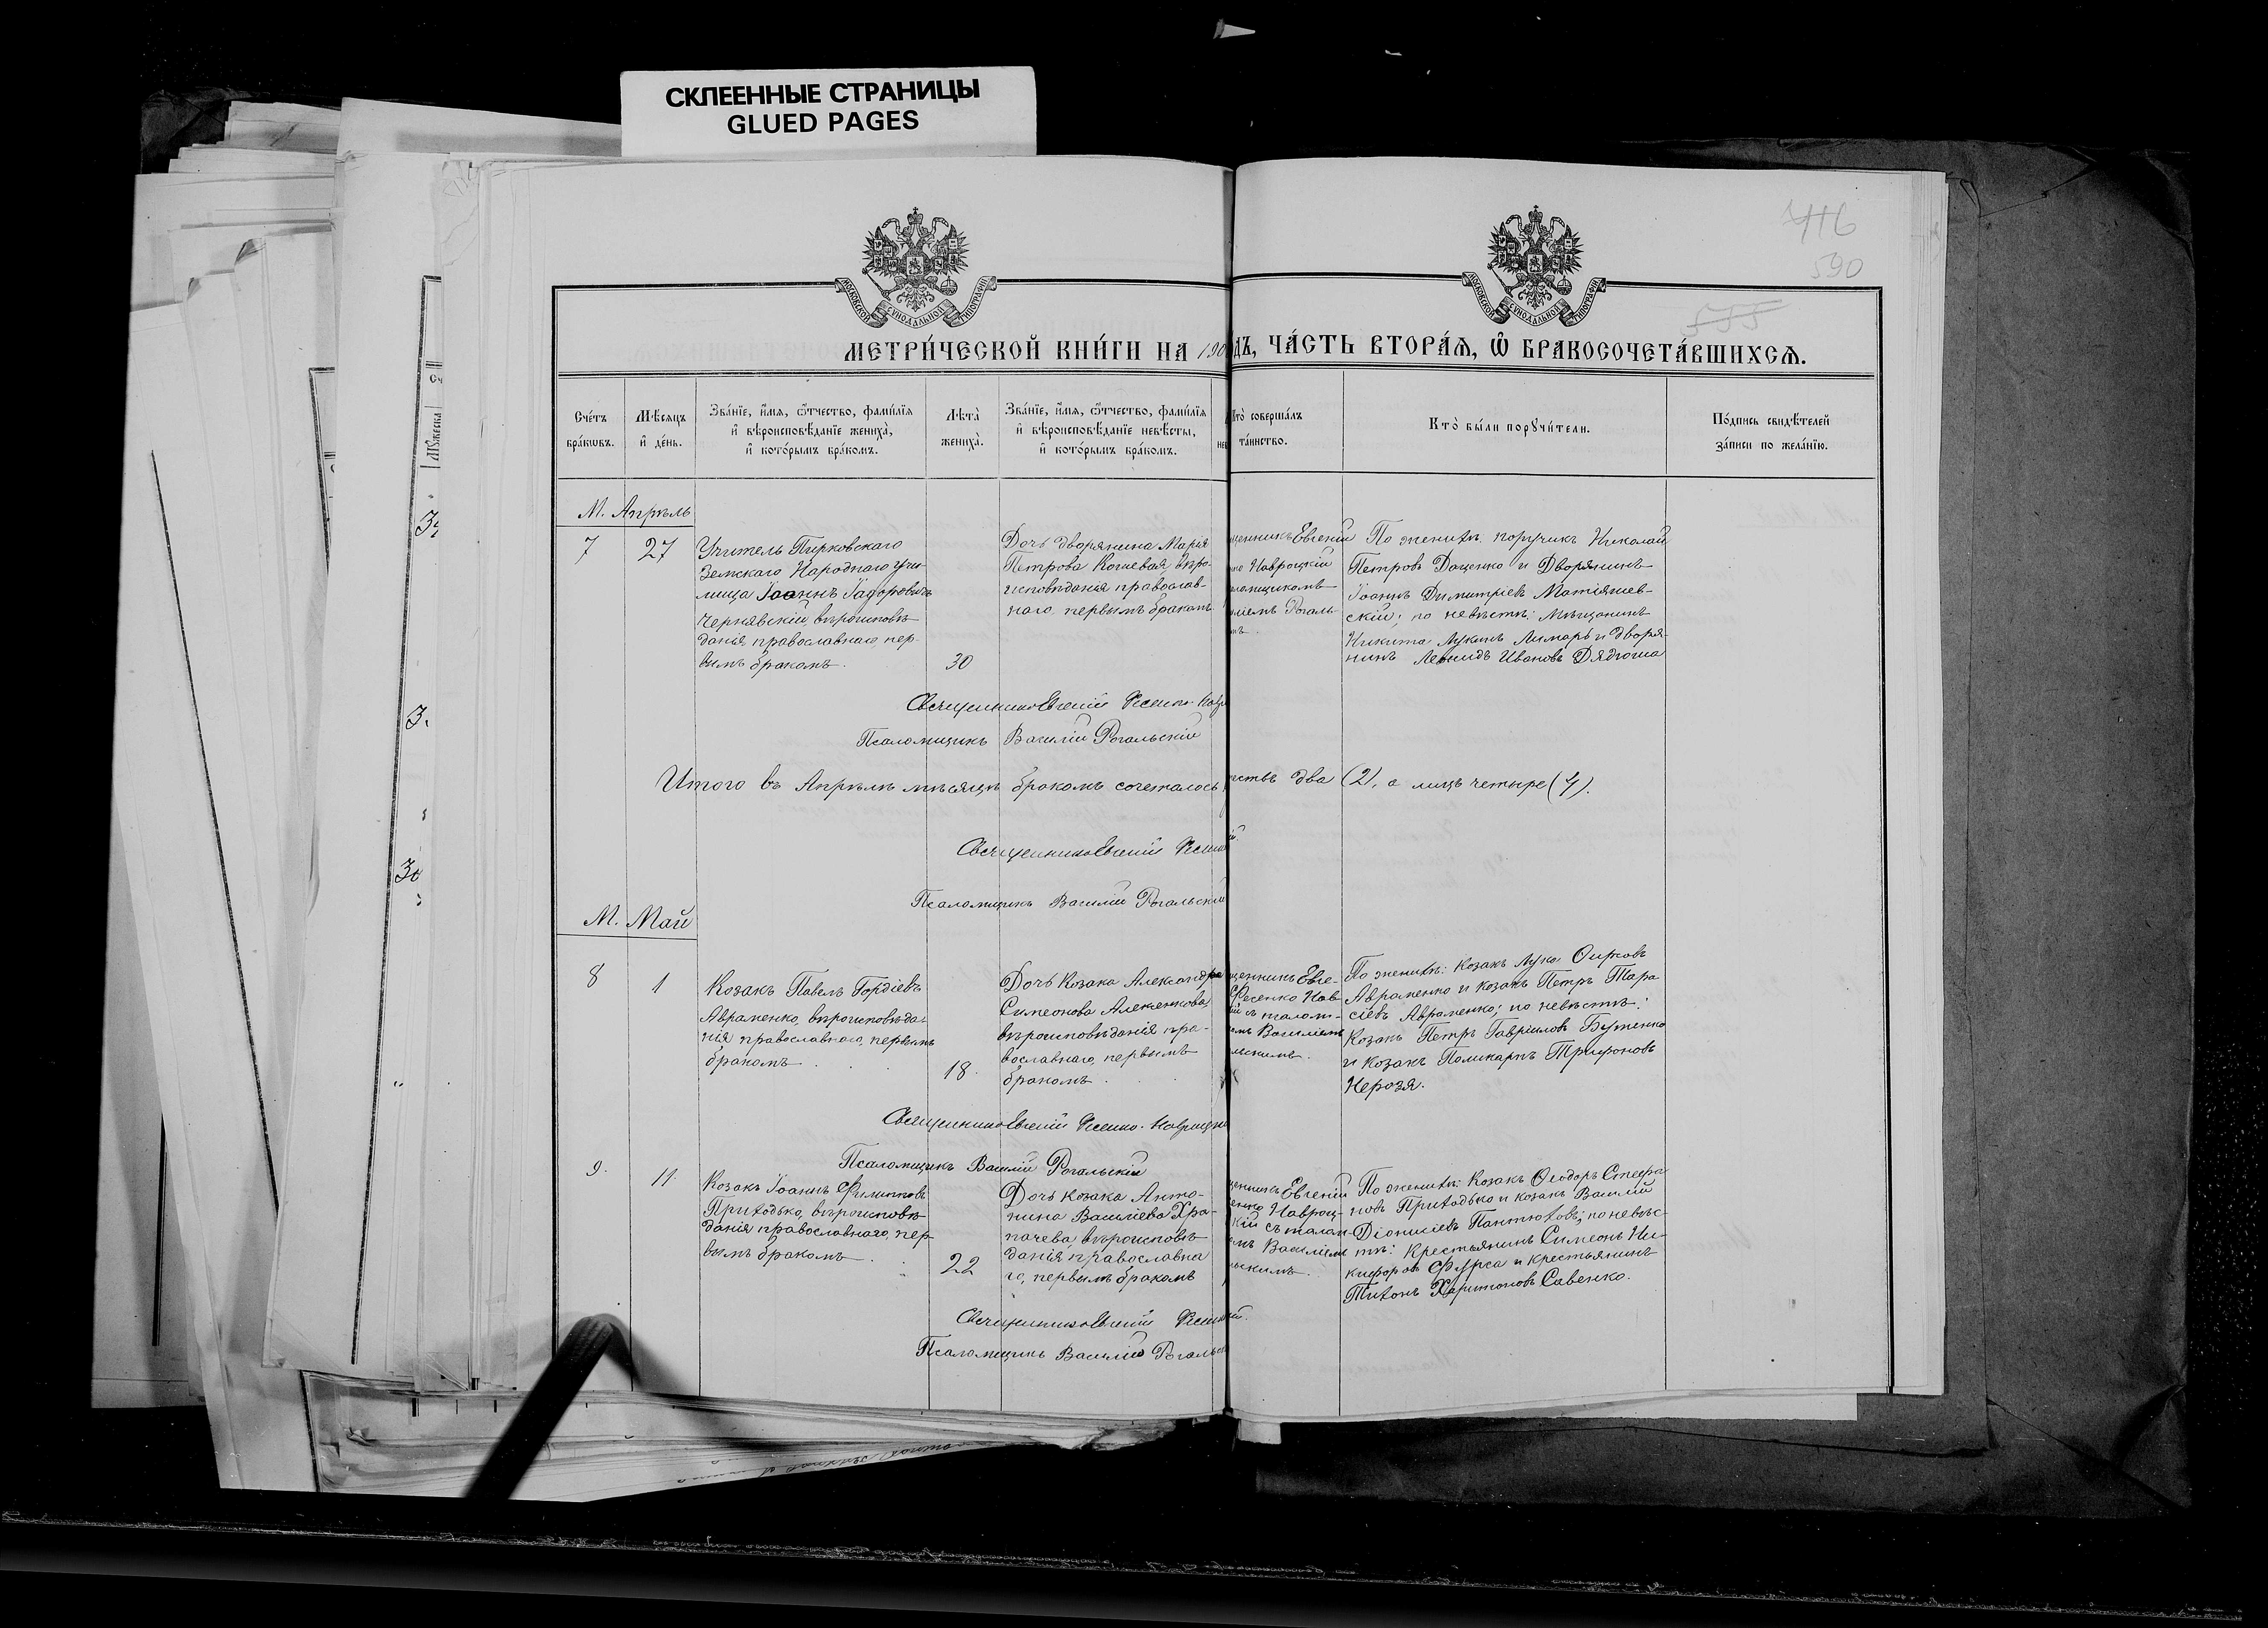 СКЛЕЕННЫЕ СТРАНИЦЫ
GLUED PAGES
416
590
555
МОСКОВСКОЙ СѴНОДАЛЬНОЙ ТИПОГРАФІИ
МОСКОВСКОЙ СѴНОДАЛЬНОЙ ТИПОГРАФІИ
МЕТРИ́ЧЕСКОЙ КНИ́ГИ НА 190
ДЪ, ЧА́СТЬ ВТОРА́Ѧ, Ѽ БРАКОСОЧЕТА́ВШИХСѦ.
Сче́тъ
бра́кѡвъ.
Мѣ́сяцъ
и҆ де́нь.
Зва́нїе, и҆́мѧ, ѻ҆́тчество, фами́лїѧ
и҆ вѣроисповѣ́данїе жениха̀,
и҆ кото́рымъ бра́комъ.
Лѣта̀
жениха̀.
Зва́нїе, и҆́мѧ, ѻ҆́тчество, фами́лїѧ
и҆ вѣроисповѣ́данїе невѣ́сты,
и҆ кото́рымъ бра́комъ.
Кто̀ соверша́лъ
та́инство.
Кто̀ бы́ли порꙋчи́тели.
По́дпись свидѣ́телей
за́писи по жела́нїю.
М. Апрѣль
7
27
Учитель Пирковскаго
Земскаго Народнаго учи-
лища Іоаннъ
Чернявскій, вѣроисповѣ
данія православнаго, пер-
вымъ бракомъ.
30
Дочь дворянина Марія
Петрова вѣро-
исповѣданія православ-
наго, первымъ бракомъ
щенникъ Евгеній
Навроцкій
ломщикомъ
иліемъ Рогаль-
мъ.
По женихѣ: поручикъ Николай
Петровъ Даценко и Дворянинъ
Іоаннъ Димитріевъ Матіяшев-
скій; по невѣстѣ: Мѣщанинъ
Никита Лукинъ Лимарь и дворя-
нинъ Леонидъ Ивановъ Дядюша
Священникъ Евгеній Фесенко-Навр
Псаломщикъ Василій Рогальскій
Итого въ Апрѣлѣ мѣсяцѣ бракомъ сочеталось
чествъ два (2), а лицъ четыре (4).
Священникъ Евгеній Фесенк
й.
Псаломщикъ Василій Рогальскій
М. Май
8
1
Козакъ Павелъ Гордіевъ
Авраменко, вѣроисповѣда-
нія православнаго, первымъ
бракомъ
18
Дочь Козака Александра
Симеонова Алексенкова,
вѣроисповѣданія пра-
вославнаго, первымъ
бракомъ.
щенникъ Евге-
Фесенко Нав-
ій съ псалом-
омъ Василіемъ
льскимъ.
По женихѣ: Козакъ Лука
Авраменко и козакъ Петръ Тара
сіевъ Авраменко; по невѣстѣ:
Козакъ Петръ Гавріиловъ Бутенко
и Козакъ Поликарпъ Трифоновъ
Нерозя.
Священникъ Евгеній Фесенко-Навроцкі
Псаломщикъ Василій Рогальскій
9.
11.
Козакъ Іоаннъ Филипповъ
Приходько, вѣроисповѣ
данія православнаго, пер-
вымъ бракомъ
22
Дочь Козака Анто-
нина Васильева Хра-
пачева, вѣроисповѣ
данія православна
го, первымъ бракомъ
щенникъ Евгеній
енко Навроц-
кій съ псалом-
омъ Василіемъ
льскимъ.
По женихѣ: Козакъ Ѳеодоръ Стефа
новъ Приходько и козакъ Василій
Діонисіевъ Пантюховъ; по невѣс-
тѣ: Крестьянинъ Симеонъ Ни-
кифоровъ Фурса и крестьянинъ
Тихонъ Харитоновъ Савенко.
Священникъ Евгеній Фесенк
ій.
Псаломщикъ Василій Рогальск